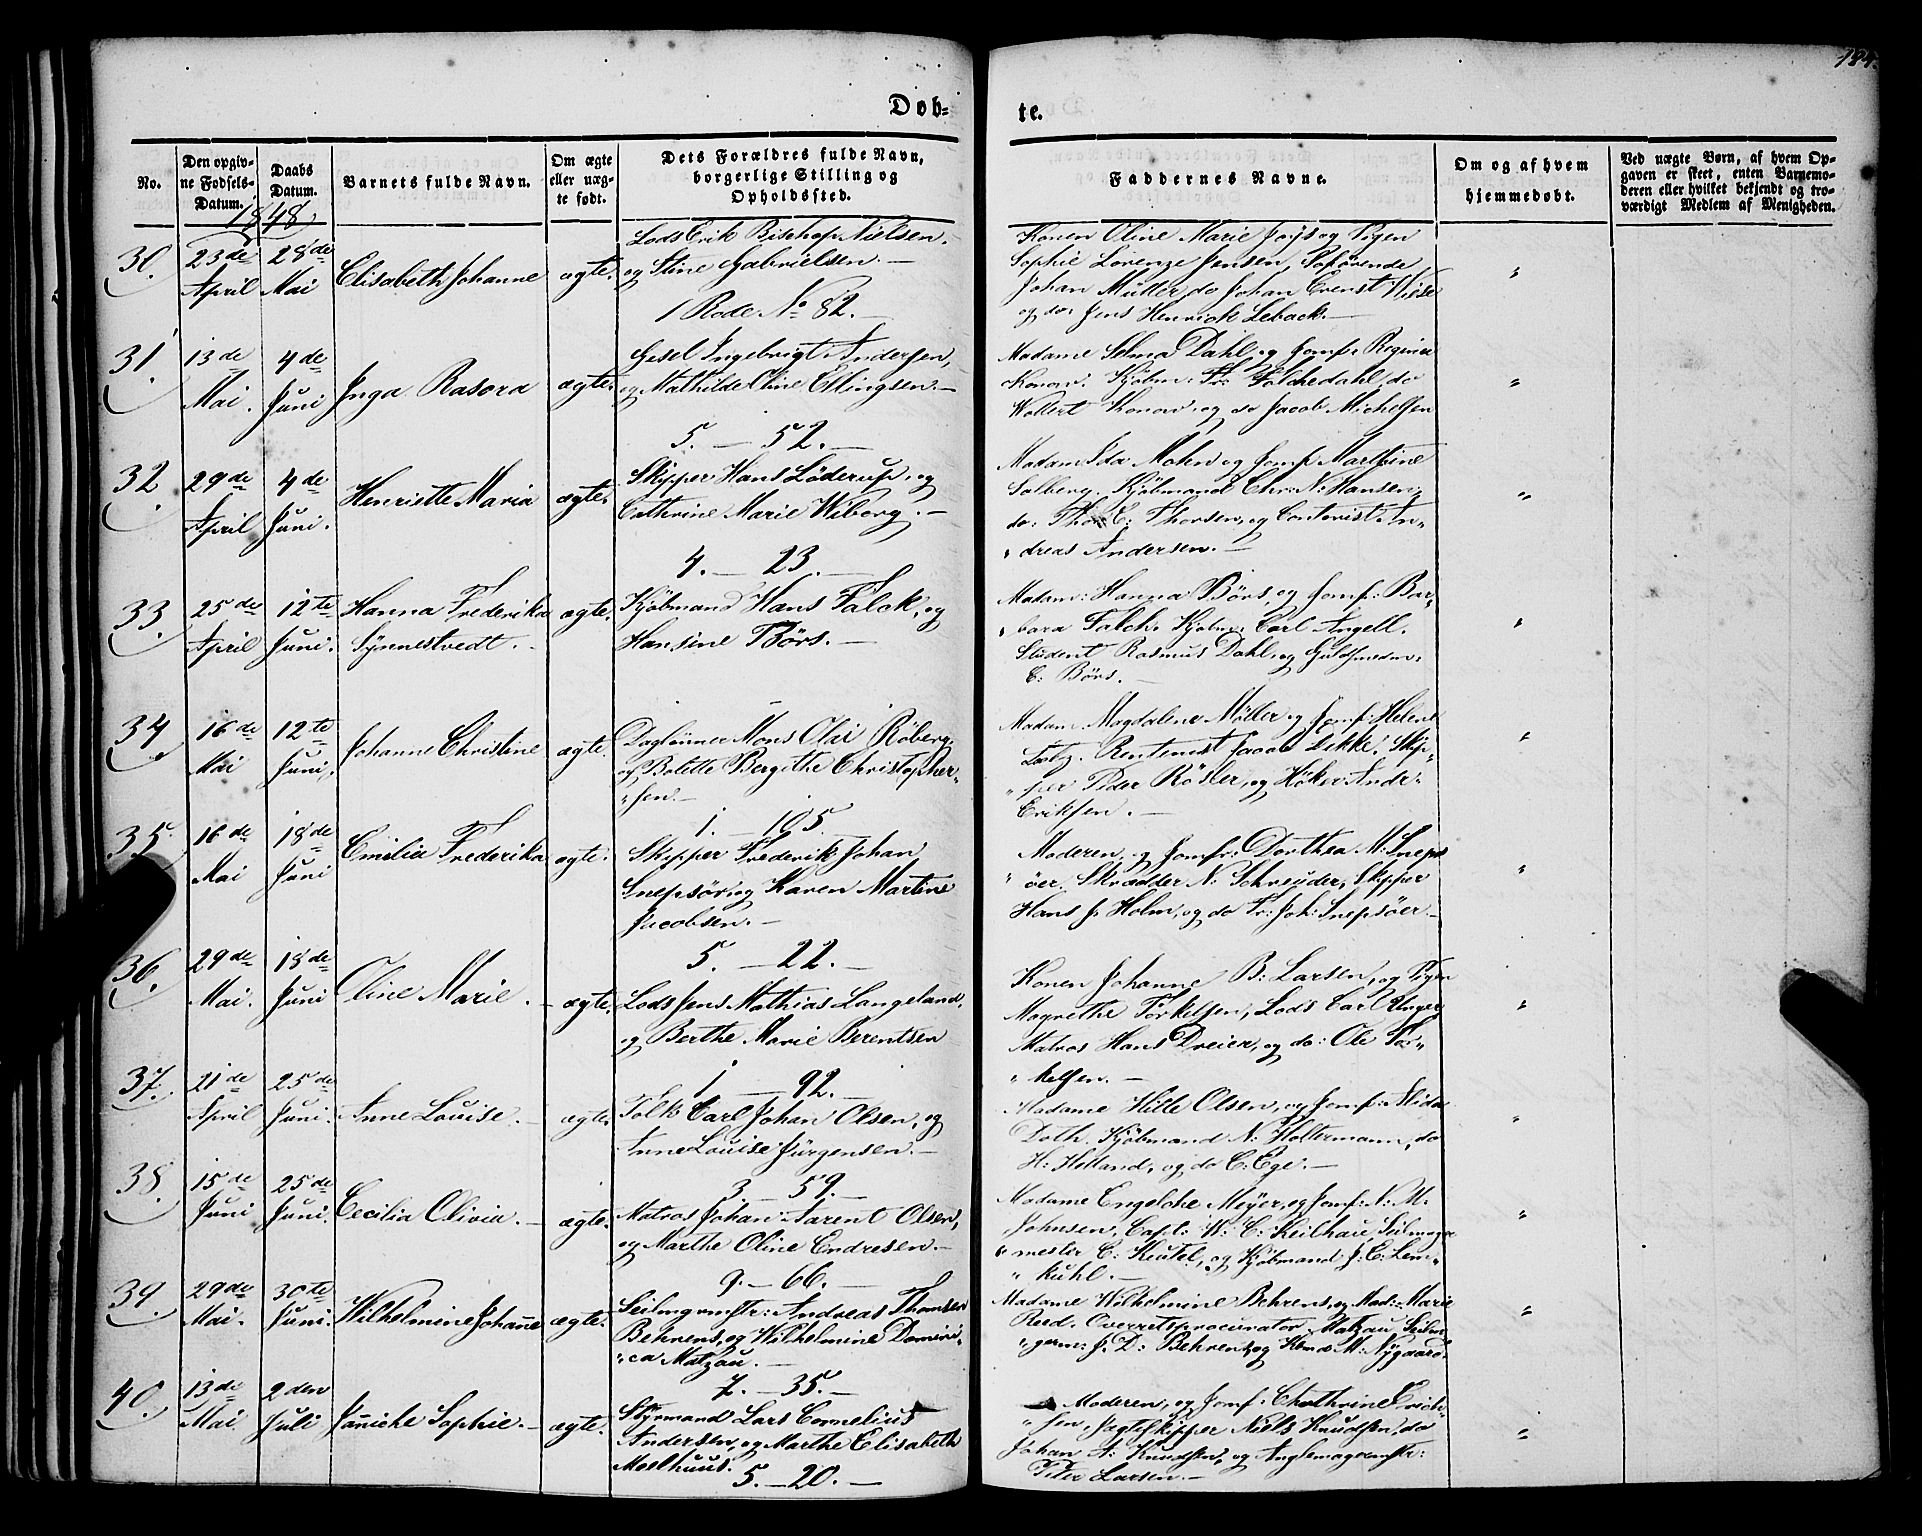 184.
Døb-
te.
No.
Den opgiv-
ne Fødsels-
Datum.
Daabs
Datum.
Barnets fulde Navn.
Om ægte
eller uæg-
te født.
Dets Forældres fulde Navn,
borgerlige Stilling og
Opholdssted.
Faddernes Navne.
Om og af hvem
hjemmedøbt.
Ved uægte Børn, af hvem Op-
gaven er skeet, enten Barnemo-
deren eller hvilket bekjendt og tro-
værdigt Medlem af Menigheden.
1848
30.
23de
April
28de
Mai
Elisabeth Johanne
ægte.
Lods Erik Bischop Nielsen.
og Stine Gabrielsen.—
1 Rode No 82.—
Konen Oline Marie og Pigen
Sophie Lorenze Jensen, Søfarende
Johan Müller do Johan Ernst Wiese
og do. Jens Henrick Leback.—
31.
13de
Mai.
4de
Juni
Inga Rasora
ægte.
Gesel Ingebrigt Andersen,
og Mathilde Oline Ellingsen.—
5.—52.—
Madame Selma Dahl, og Jomf. Regine
Konow. Kjøbm: Fr: Falchedahl, do
Wollert Konow, og do Jacob Michelsen
32.
29de
April
4de
Juni.
Henriette Maria
ægte.
Skipper Hans Löderup, og
Cathrine Marie Wiberg.—
4.—23.—
Madam Ida Mohn og Jomf Marthine
Solberg, Kjøbmand Chr: N: Hansen,
do: Thor E: Thorsen, og Contorist An„
„dreas Andersen.—
33.
25de
April
12te
Juni.
Hanna Frederika
Synnestvedt.
ægte.
Kjøbmand Hans Falck, og
Hansine Börs.—
Madam: Hanna Börs, og Jomf: Bar„
„bara Falch. Kjøbm: Carl Angell.
Student Rasmus Dahl, og Guldsmedm:
C: Börs.—
34.
16de
Mai
12te
Juni.
Johanne Christine
ægte
Daglönner Mons Olai Röberg,
og Bolette Bergithe Christopher„
„sen.—
1.—105.
Madam Magdalene Möller og Jomf: Helene
Rentenist Jacob Lekke. Skip„
„per Peder Rösler, og Höker Andr:
Eriksen.—
35.
16de
Mai
18de
Juni
Emilia Frederika
ægte.
Skipper Frederik Johan
Snepsör, og Karen Martine
Jacobsen.—
5.—22.—
Moderen, og Jomfr: Dorthea M: Sneps
„öer. Skrædder N: Schreuder, Skipper
Hans J Holm, og do Fr: Joh: Snepsöer.—
36.
29de
Mai.
18de
Juni
Oline Marie.—
ægte.
Lods Jens Mathias Langeland.
og Berthe Marie Berentsen
1—92.—
Konen Johanne B: Larsen, og Pigen
Magrethe Torkelsen, Lods Carl Unger
Matros Hans Dreier, og do: Ole Tor„
„kelsen.—
37.
21de
April
25de
Juni.
Anne Louise.—
ægte.
Tolk Carl Johan Olsen, og
Anne Louise Jürgensen.—
3—59.—
Madame Hille Olsen, og Jomf: Alida
Doth. Kjöbmand N: Holtermann, do
H: Holland, og do C: Ege.—
38.
15de
Juni
25de
Juni.
Cecilia Olivia.—
ægte.
Matros Johan Aarent Olsen,
og Marthe Oline Endresen.—
9.—66.—
Madame Engelche Meyer, og Jomf: N: M:
Johnsen, Capt: W: C: Keilhau, Seilmager
„mester C: Keutel, og Kjöbmand J: E: Lem„
„kuhl.—
39.
29de
Mai.
30te
Juni.
Wilhelmine Johanne
ægte.
Seilmgrmstr: Andreas Thomsen
Behrens, og Wilhelmine Domini„
„ca Matzau.—
7.—35.—
Madame Wilhelmine Behrens, og Mad: Marie
Reed. Overretsprocurator Matzau, Seilm„
„germ: J: D: Behrens, og Hand. M: Nygaard.
40.
13de
Mai
2den
Juli
Janiche Sophie.—
ægte.
Styrmand Lars Cornelius
Andersen, og Marthe Elisabeth
Moelhuus.
5.—20.—
Moderen, og Jomf. Chathrine Erich„
„sen, Jagtskipper Niels Knudsen, do
Johan A: Knudsen, og Anglemagermstr:
Peter Larsen.—